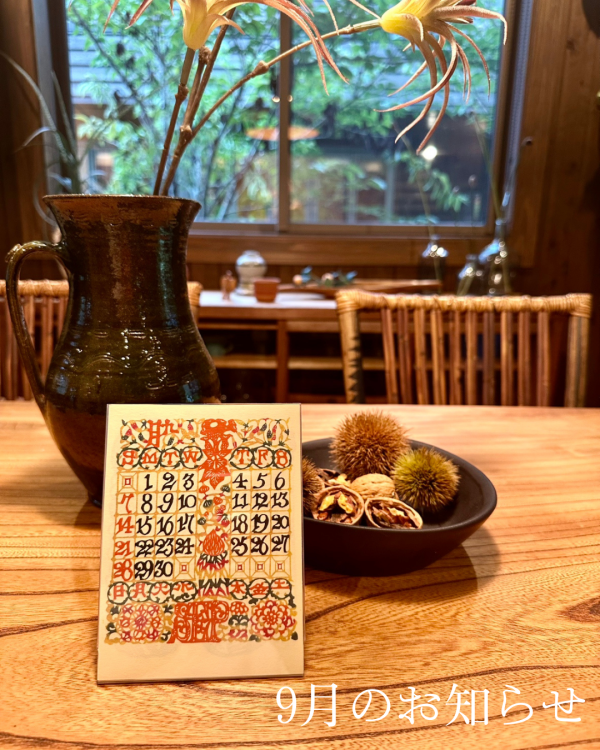 S M T W T F S
1 2 3 4 5 6
7 8 9 10 11 12 13
14 15 16 17 18 19 20
21 22 23 24 25 26 27
28 29 30
日 月 火 水 木 金 土
9月のお知らせ